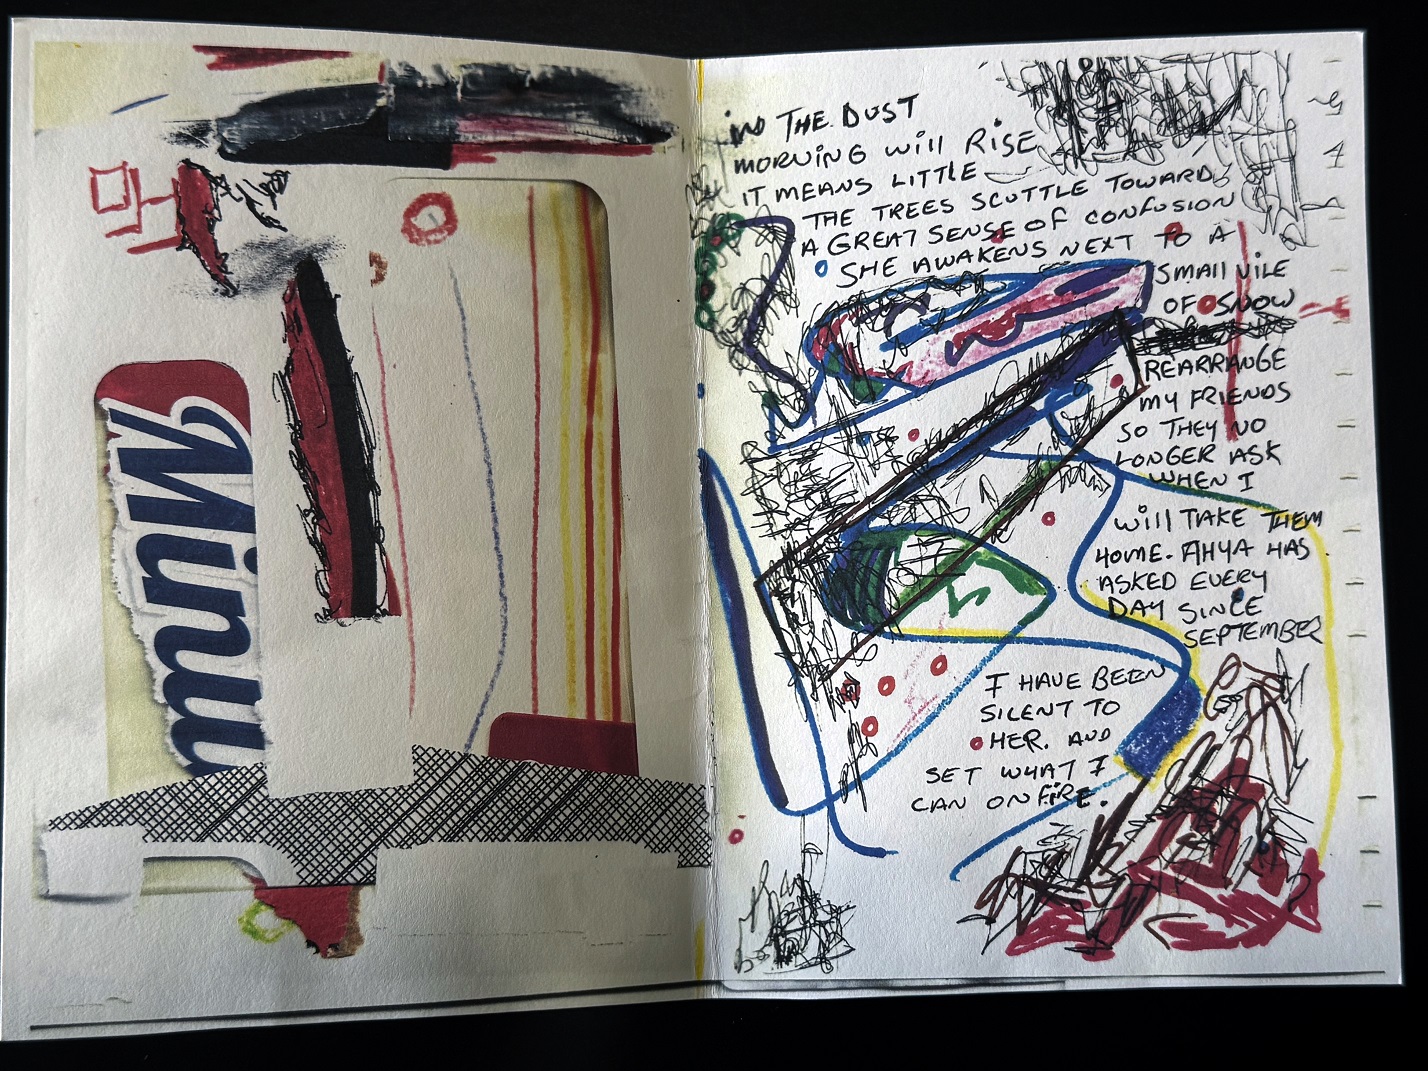 Minu
IN THE DUST
MORNING WILL RISE
IT MEANS LITTLE
THE TREES SCUTTLE TOWARD
A GREAT SENSE OF CONFUSION
SHE AWAKENS NEXT TO A
SMALL VILE
OF SNOW
REARRANGE
MY FRIENDS
SO THEY NO
LONGER ASK
WHEN I
WILL TAKE THEM
HOME. AHYA HAS
ASKED EVERY
DAY SINCE
SEPTEMBER
I HAVE BEEN
SILENT TO
HER. AND
SET WHAT I
CAN ON FIRE.